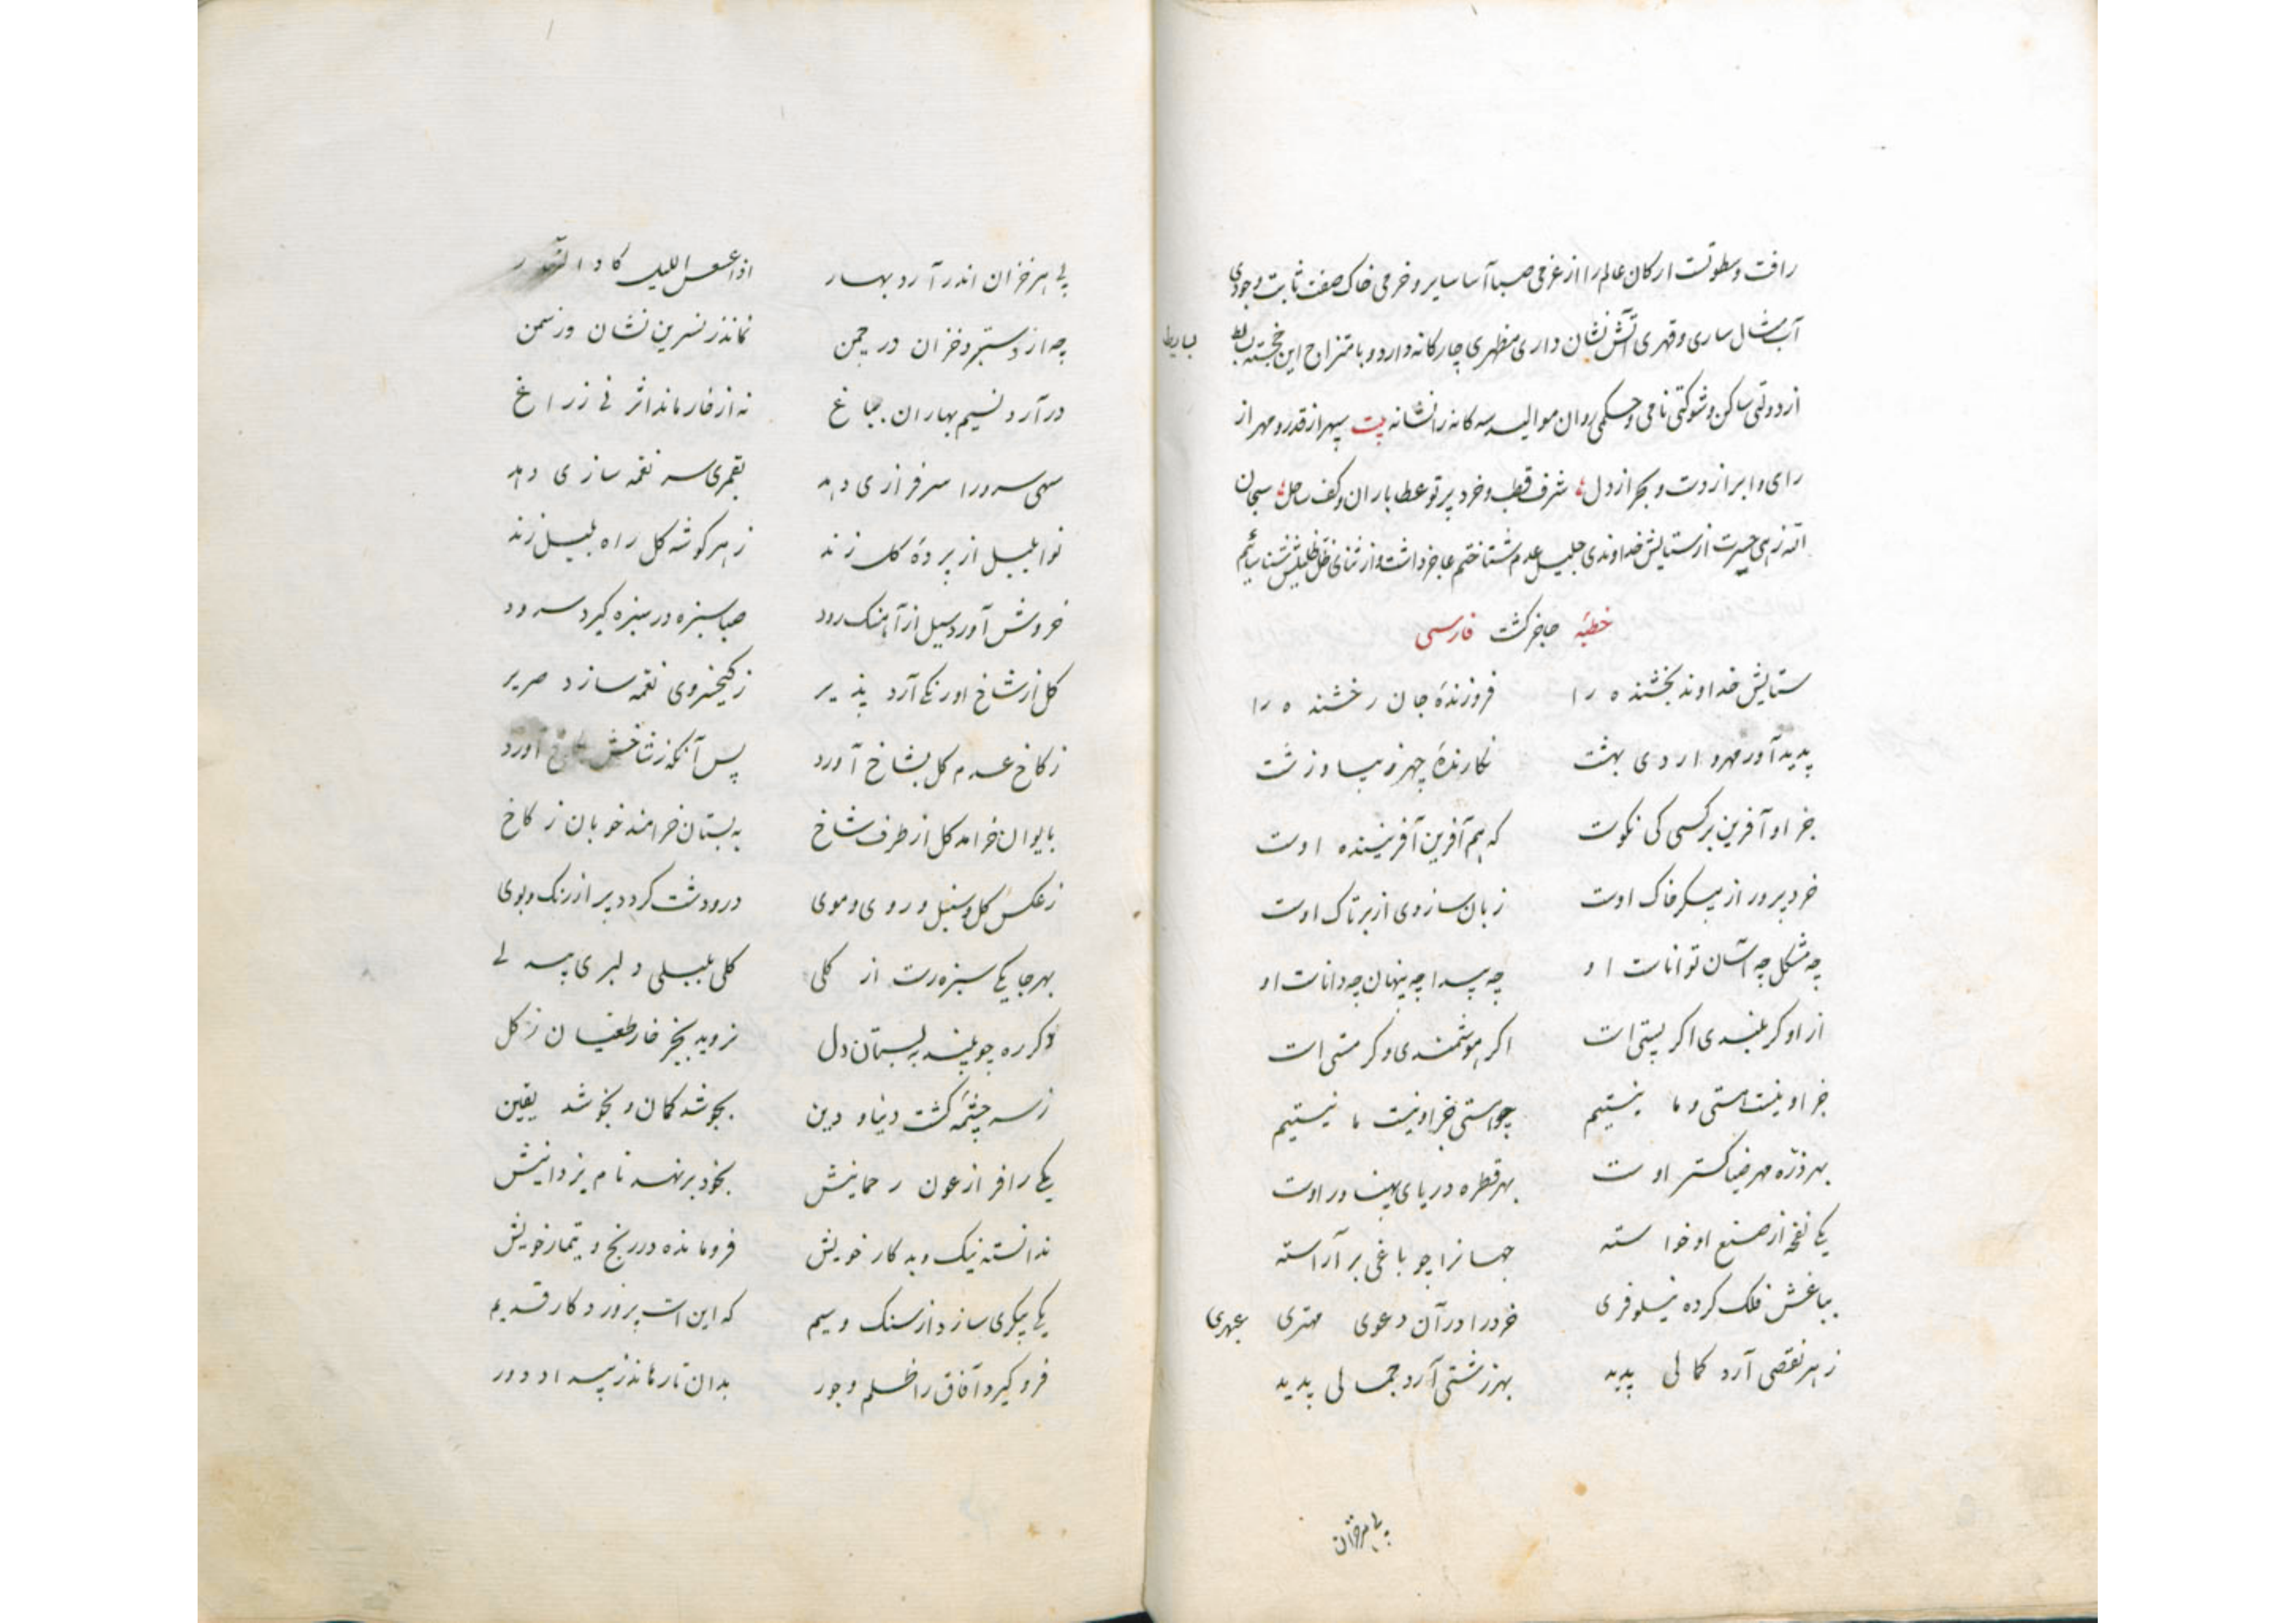 رافت و سطوتست ارکان عالم را از عزمی صبا آسا سایر و حزمی خاک صفت ثابت وجودی
آب مثال ساری و قهری آتش نشان داری مظهری چارکانه دارد و بامتزاج این خجسته بسایط
از دولتی ساکن و شوکتی نامی و حکمی روان موالید سه کانه را نشانه بیت سپهر از قدر و مهر از
رای و ابر از دست و بحر از دل شرف قطب و خرد پرتو عطا باران و کف ساحل سبحان
الله زهی حیرت از ستایش خداوندی جلیل عدم شناختم عاجز داشت و از ثنای ظل ظلیلش شناسائیم
خطبه جاخر کشت فارسی
ستایش خداوند بخشنده را فروزندهٔ جان رخشنده را
پدید آور مهر و اردی بهشت نکارندهٔ چهر زیبا و زشت
جز او آفرین بر کسی کی نکوست که هم آفرین آفریننده اوست
خرد پرور از پیکر خاک اوست زبان سازوی از بر تاک اوست
چه مشکل چه آسان تواناست او چه پیدا چه پنهان چه داناست او
از او کر بلندی اکر پستی است اکر هوشمندی و کر مستی است
جز او نیست هستی و ما نیستیم چو هستی جز او نیست ما نیستیم
بهر ذره مهر ضیا کستر اوست بهر قطره دریای پهناور اوست
یکی نفخه از صنع او خواسته جهانرا چو باغی بر آراسته
بباغش فلک کرده نیلوفری خرد را در آن دعوی مهتری عبهری
ز هر نقصی آرد کمالی پدید بهر زشتی آرد جمالی پدید
پی هر خزان
پی هر خزان اندر آرد بهار اذا عسعس اللیل کاد النهار
چه از دستبرد خزان در چمن نماند ز نسرین نشان وز سمن
در آرد نسیم بهاران بباغ نه از خار ماند اثر نی ز زاغ
سهی سرو را سرفرازی دهد بقمری سر نغمه سازی دهد
نوا بلبل از پردهٔ کل زند ز هر کوشه کل راه بلبل زند
خروش آورد سیل از آهنک رود صبا سبزه در سبزه کیرد سرود
کل از شاخ اورنکی آرد پذیر ز کیخسروی نغمه سازد صریر
ز کاخ عدم کل بشاخ آورد پس آنکه ز شاخش بکاخ آورد
بایوان خرامد کل از طرف شاخ به بستان خرامند خوبان ز کاخ
ز عکس کل و سنبل و روی و موی در و دشت کردد پر از رنک و بوی
بهر جا یکی سبزه رست از کلی کلی بلبلی دلبری بیدلی
دکر ره چو بیند به بستان دل نروید بجز خار طغیان ز کل
ز سرچشمهٔ کشت دنیا و دین بجوشد کمان و بخوشد یقین
یکی را فر از عون رحمانیش بخود بر نهد نام یزدانیش
ندانسته نیک و بد کار خویش فرو مانده در رنج و تیمار خویش
یکی پیکری سازد از سنک و سیم که این است پروردکار قدیم
فرو کیرد آفاق را ظلم و جور بدان تا رماند ز بیداد دور